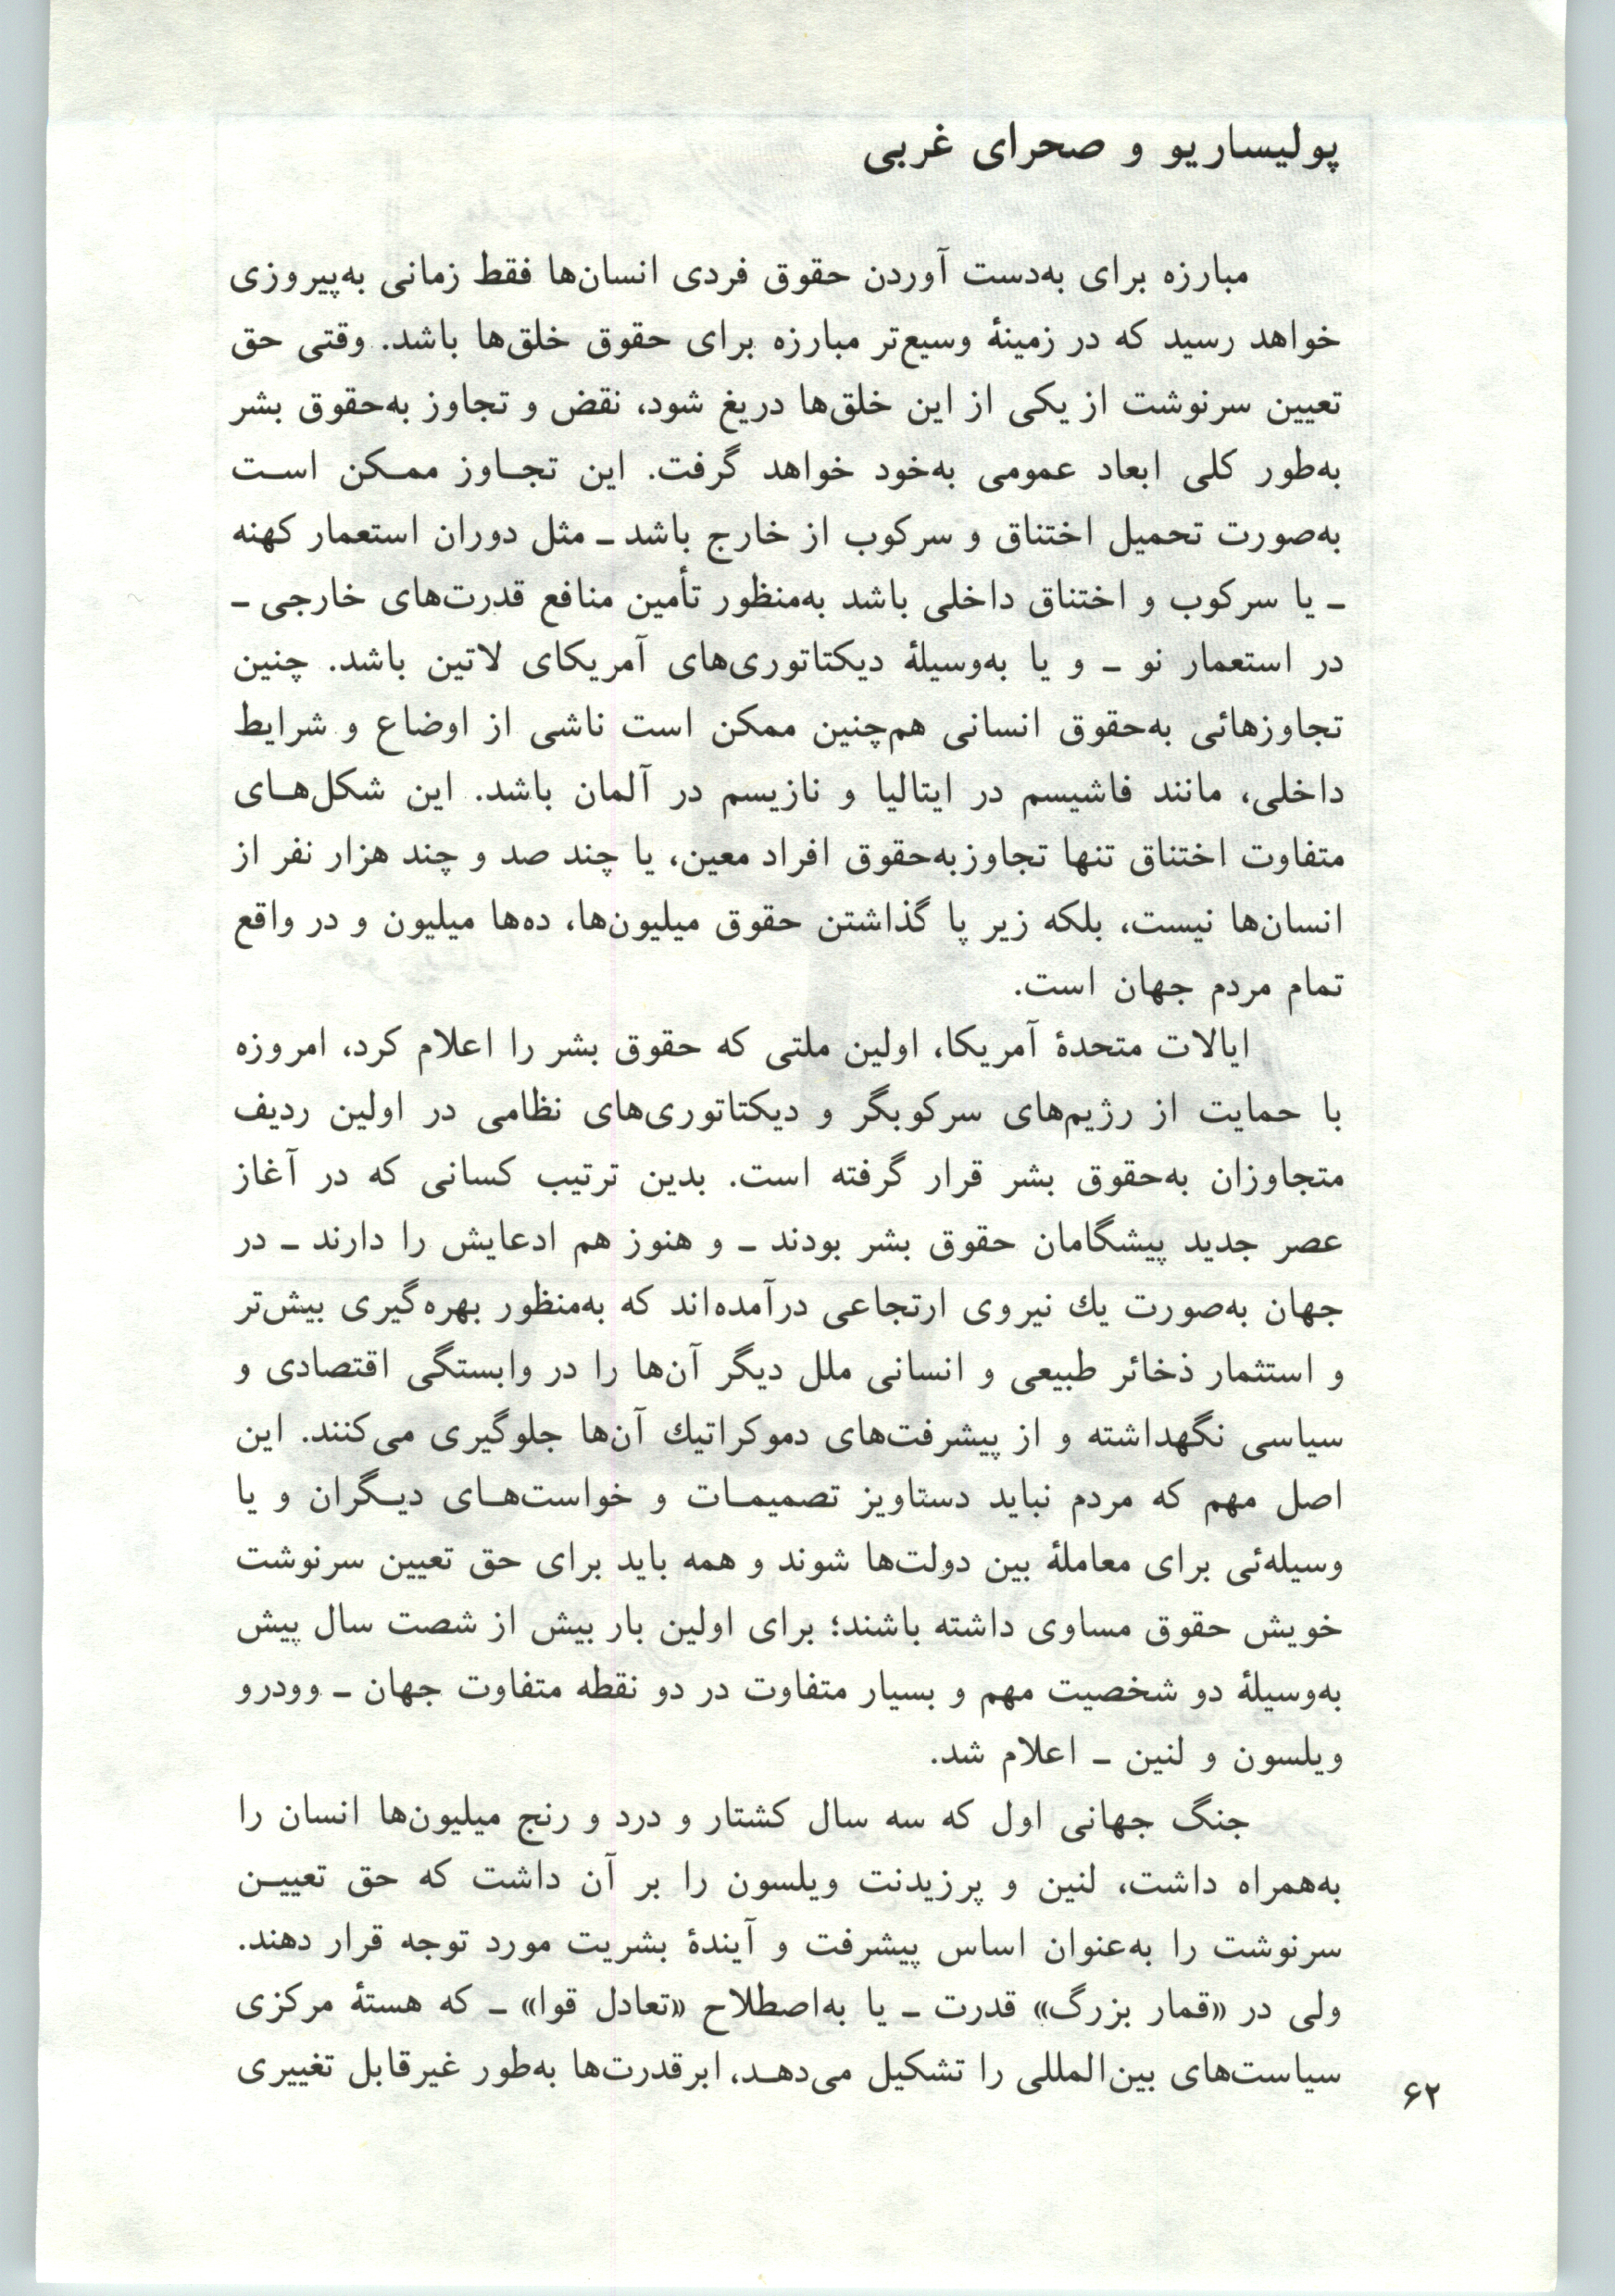 پولیساریو و صحرای غربی
مبارزه برای به‌دست آوردن حقوق فردی انسان‌ها فقط زمانی به‌پیروزی
خواهد رسید که در زمینهٔ وسیع‌تر مبارزه برای حقوق خلق‌ها باشد. وقتی حق
تعیین سرنوشت از یکی از این خلق‌ها دریغ شود، نقض و تجاوز به‌حقوق بشر
به‌طور کلی ابعاد عمومی به‌خود خواهد گرفت. این تجـاوز ممـکن اسـت
به‌صورت تحمیل اختناق و سرکوب از خارج باشد ـ مثل دوران استعمار کهنه
ـ یا سرکوب و اختناق داخلی باشد به‌منظور تأمین منافع قدرت‌های خارجی ـ
در استعمار نو ـ و یا به‌وسیلهٔ دیکتاتوری‌های آمریکای لاتین باشد. چنین
تجاوزهائی به‌حقوق انسانی هم‌چنین ممکن است ناشی از اوضاع و شرایط
داخلی، مانند فاشیسم در ایتالیا و نازیسم در آلمان باشد. این شکل‌هـای
متفاوت اختناق تنها تجاوزبه‌حقوق افراد معین، یا چند صد و چند هزار نفر از
انسان‌ها نیست، بلکه زیر پا گذاشتن حقوق میلیون‌ها، ده‌ها میلیون و در واقع
تمام مردم جهان است.
ایالات متحدهٔ آمریکا، اولین ملتی که حقوق بشر را اعلام کرد، امروزه
با حمایت از رژیم‌های سرکوبگر و دیکتاتوری‌های نظامی در اولین ردیف
متجاوزان به‌حقوق بشر قرار گرفته است. بدین ترتیب کسانی که در آغاز
عصر جدید پیشگامان حقوق بشر بودند ـ و هنوز هم ادعایش را دارند ـ در
جهان به‌صورت یك نیروی ارتجاعی درآمده‌اند که به‌منظور بهره‌گیری بیش‌تر
و استثمار ذخائر طبیعی و انسانی ملل دیگر آن‌ها را در وابستگی اقتصادی و
سیاسی نگهداشته و از پیشرفت‌های دموکراتیك آن‌ها جلوگیری می‌کنند. این
اصل مهم که مردم نباید دستاویز تصمیمـات و خواست‌هـای دیـگران و یا
وسیله‌ئی برای معاملهٔ بین دولت‌ها شوند و همه باید برای حق تعیین سرنوشت
خویش حقوق مساوی داشته باشند؛ برای اولین بار بیش از شصت سال پیش
به‌وسیلهٔ دو شخصیت مهم و بسیار متفاوت در دو نقطه متفاوت جهان ـ وودرو
ویلسون و لنین ـ اعلام شد.
جنگ جهانی اول که سه سال کشتار و درد و رنج میلیون‌ها انسان را
به‌همراه داشت، لنین و پرزیدنت ویلسون را بر آن داشت که حق تعییـن
سرنوشت را به‌عنوان اساس پیشرفت و آیندهٔ بشریت مورد توجه قرار دهند.
ولی در «قمار بزرگ» قدرت ـ یا به‌اصطلاح «تعادل قوا» ـ که هستهٔ مرکزی
سیاست‌های بین‌المللی را تشکیل می‌دهـد، ابرقدرت‌ها به‌طور غیرقابل تغییری
۶۲